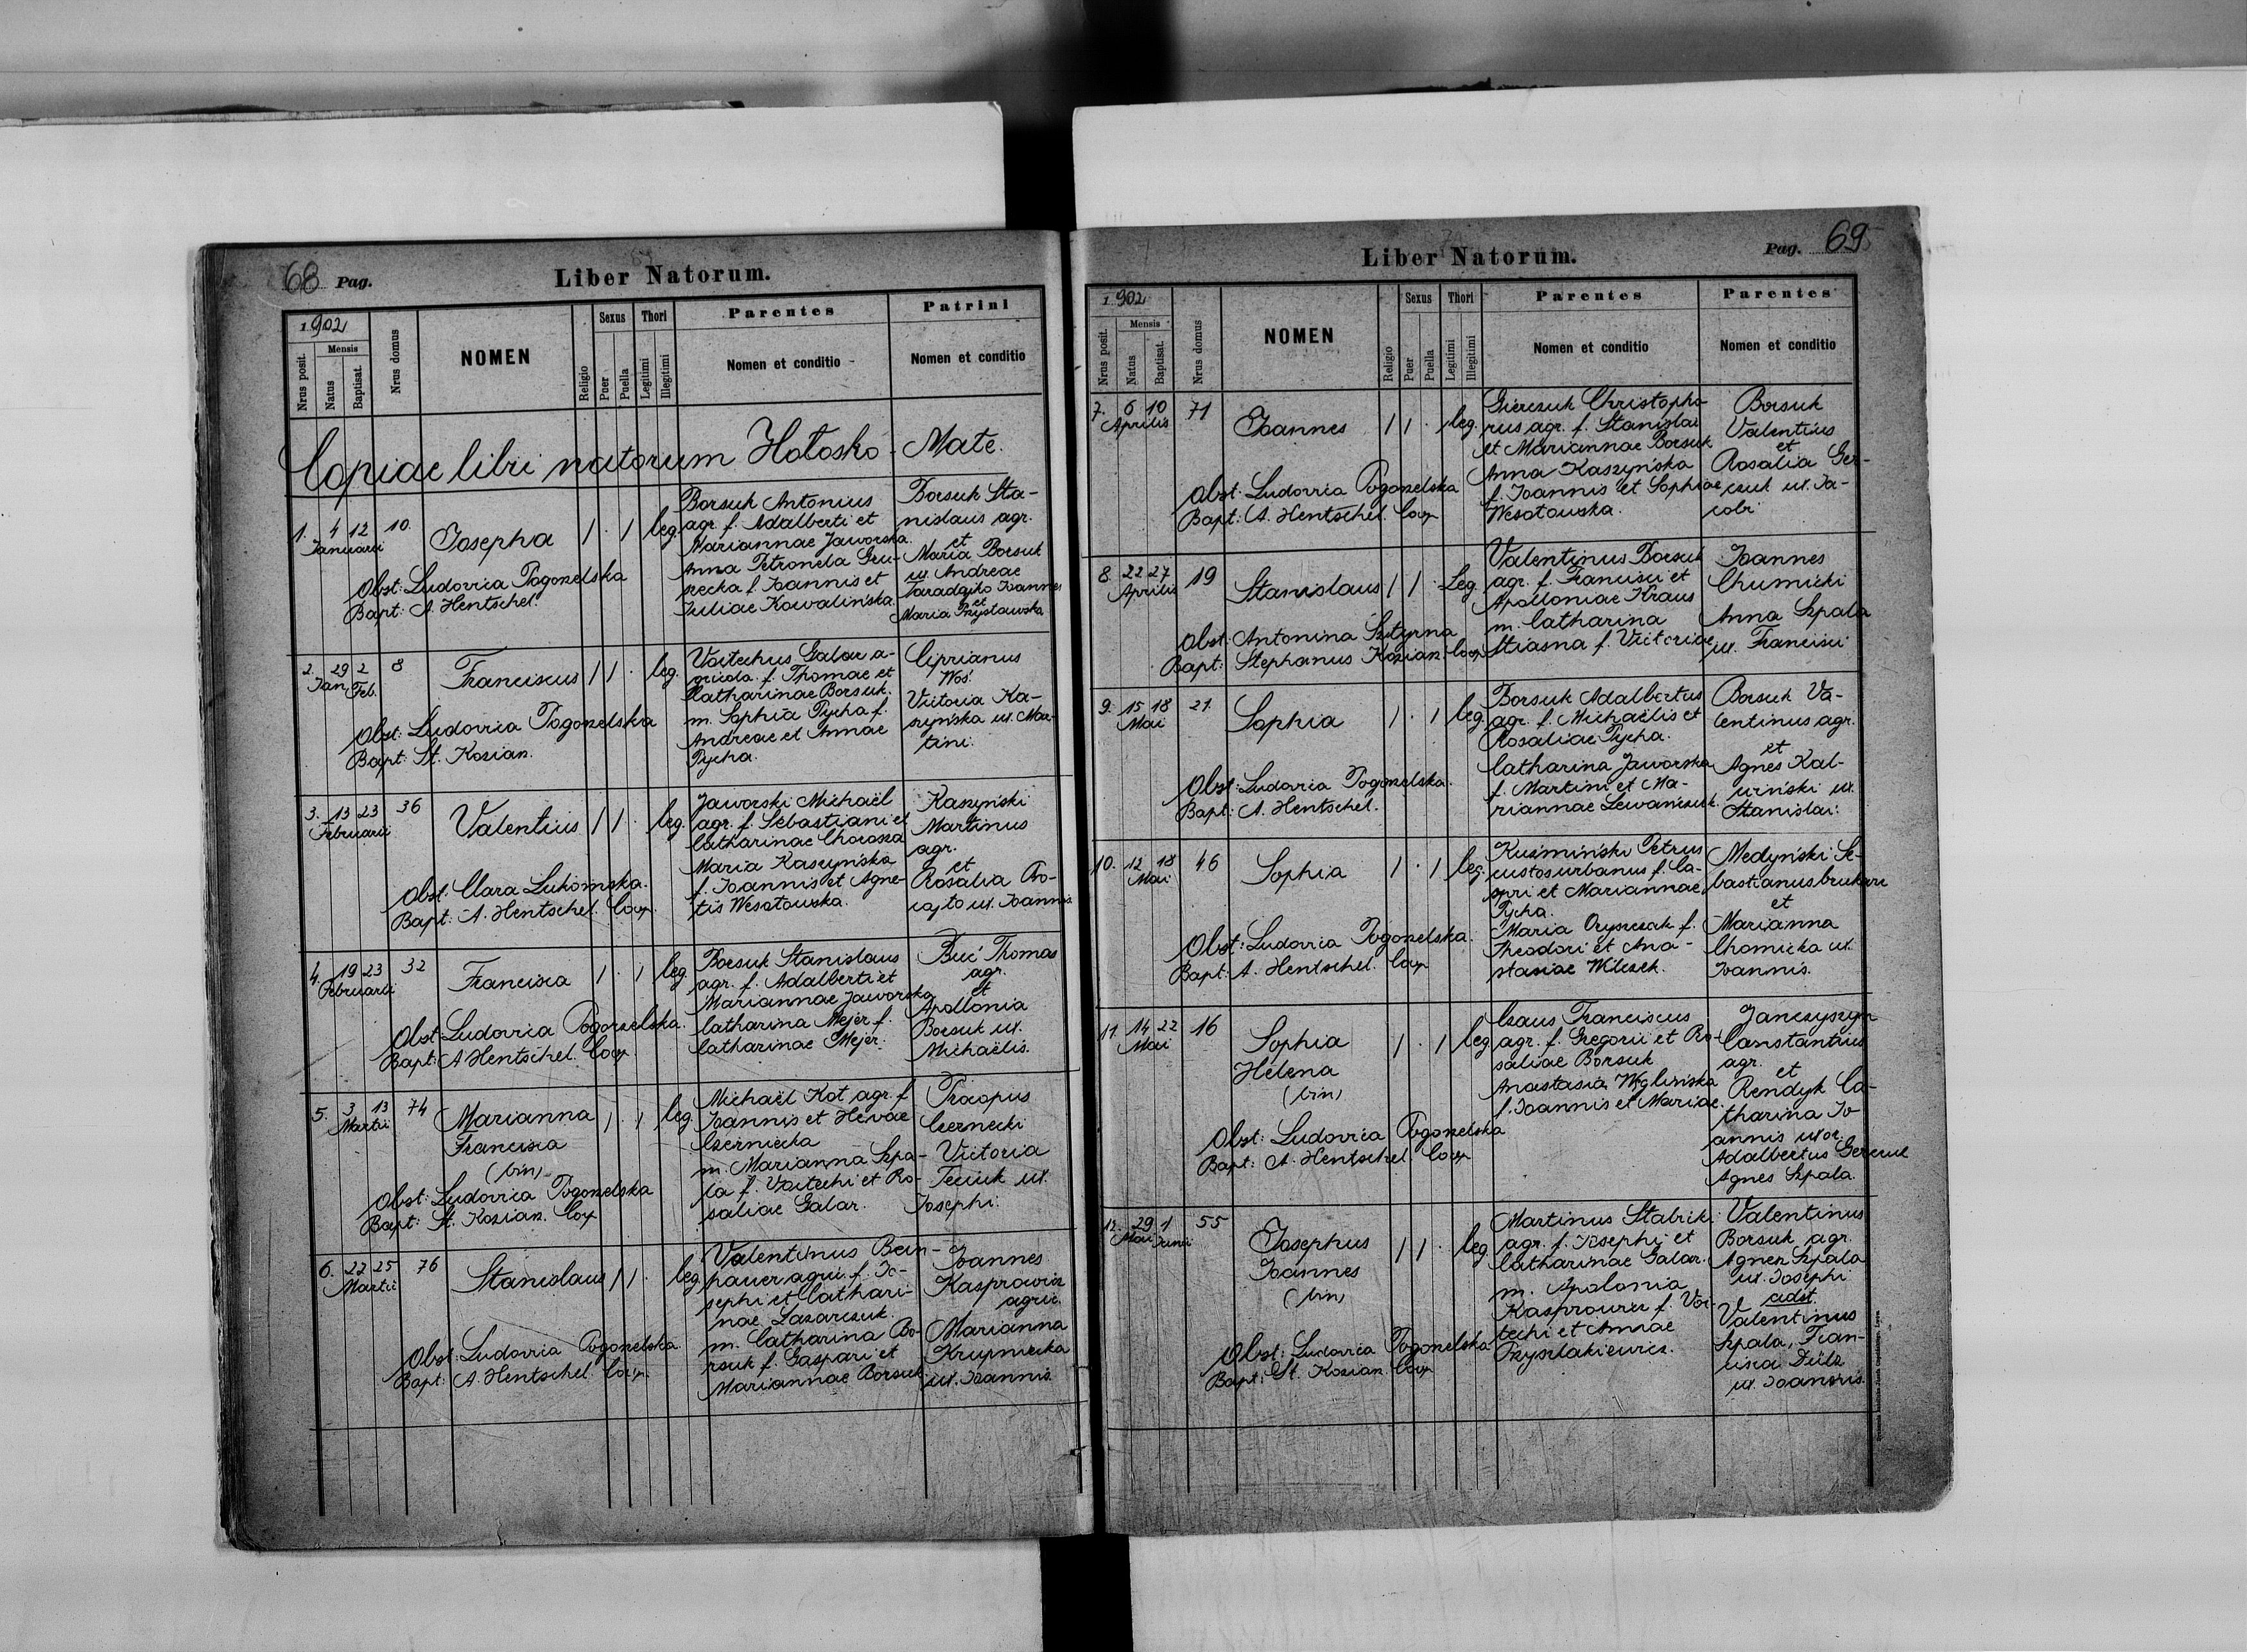 68 Pag.
Liber Natorum.
1902
Nrus posit.
Mensis
Natus
Baptisat.
Nrus domus
NOMEN
Religio
Sexus
Puer
Puella
Thori
Legitimi
Illegitimi
Parentes
Nomen et conditio
Patrini
Nomen et conditio
Copiae libri natorum Hołosko Małe.
1. 4 12 10.
Januarii
Josepha 1 . 1 leg.
Obst: Ludovica Pogonelska
Bapt: A. Hentschel.
Borsuk Antonius
agr. f. Adalberti et
Mariannae Jaworska.
Anna Petronela
f. Joannis et
Juliae Kowalińska.
Borsuk Sta-
nislaus agr.
et
Maria Borsuk
ux. Andreae
Joannes
et
Maria
2. 29 2 8
Jan. Feb.
Franciscus 1 1 . leg.
Obst: Ludovica Pogonelska
Bapt: St. Kozian.
Voitechus Galar a-
gricola f. Thomae et
Catharinae Borsuk.
m. Sophia Pycha f.
Andreae et Annae
Pycha.
Ciprianus
Woś
Victoria Ka-
szyńska ux. Mar-
tini.
3. 13 23 36
Februarii
Valentius 1 1 . leg.
Obst. Clara Lukomska.
Bapt: A. Hentschel. Coop.
Jaworski Michaël
agr. f. Sebastiani et
Catharinae
Maria Kaszyńska
f. Joannis et Agne-
tis Wesołowska.
Kaszyński
Martinus
agr.
et
Rosalia
ux. Joannis
4. 19 23 32
Februarii
Francisca 1 . 1 leg
Obst: Ludovica Pogonelska.
Bapt: A Hentschel. Coop.
Borsuk Stanislaus
agr. f. Adalberti et
Mariannae Jaworska
Catharina Mejer f.
Catharinae Mejer.
Buć Thomas
agr.
et
Apollonia
Borsuk ux.
Michaëlis.
5. 3 13 74
Martii
Marianna 1 . 1 leg.
Francisca
(bin)
Obst: Ludovica Pogonelska
Bapt: St. Kozian. Coop
Michaël Kot agr. f
Joannis et Hevae
Czerniecka
m. Marianna Szpa-
la f. Voitechi et Ro-
saliae Galar.
Procopus
Czernecki
Victoria
ux.
Josephi.
6. 22 25 76
Martii
Stanislaus 1 1 . leg.
Obst: Ludovica Pogonelska
Bapt: A. Hentschel Coop.
Valentinus Bein-
hauer f. Jo-
sephi et Cathari-
nae Lazarczuk.
m. Catharina Bo-
rsuk f. Gaspari et
Mariannae Borsuk.
Joannes
Kasprowicz
agric.
Marianna
Krupnicka
ux. Joannis.
Liber Natorum.
Pag. 69
1902
Nrus posit.
Mensis
Natus
Baptisat.
Nrus domus
NOMEN
Religio
Sexus
Puer
Puella
Thori
Legitimi
Illegitimi
Parentes
Nomen et conditio
Parentes
Nomen et conditio
7. 6 10 71
Aprilis
Joannes 1 1 . leg.
Obst: Ludovica Pogonelska
Bapt: A. Hentschel. Coop
Gierczuk Christopho-
rus agr. f. Stanislai
et Mariannae Borsuk
Anna Kaszyńska
f. Joannis et Sophiae
Wesołowska.
Borsuk
Valentius
et
Rosalia Ger-
czuk ux. Ja-
cobi
8. 22 27 19
Aprilis
Stanislaus 1 1 . Leg.
Obst: Antonina
Bapt: Stephanus Kozian. Coop.
Valentinus Borsuk
agr. f. Francisci et
Apolloniae Kraus
m. Catharina
Stiasna f. Victoriae
Joannes
Chumicki
Anna Szpala
ux. Francisci
9. 15 18 21.
Mai
Sophia 1 . 1 leg.
Obst: Ludovica Pogonelska.
Bapt: A. Hentschel.
Borsuk Adalbertus
agr. f. Michaëlis et
Rosaliae Pycha.
Catharina Jaworska
f. Martini et Ma-
riannae Lewańczuk.
Borsuk Va-
lentinus agr.
et
Agnes Kal-
uiński ux.
Stanislai.
10. 12 18 46
Mai
Sophia 1 . 1 leg.
Obst: Ludovica Pogonelska.
Bapt: A. Hentschel. Coop
Kuśmiński Petrus
custos urbanus f. Ca-
spri et Mariannae
Pycha.
Maria Oryszczak f.
Theodori et Ana-
stasiae Wilczek.
Medyński Se-
bastianus
et
Marianna
Chomicka ux.
Joannis.
11. 14 22 16
Mai
Sophia 1 . 1 leg
Helena
(bin)
Obst: Ludovica Pogonelska
Bapt: A. Hentschel Coop
Czaus Franciscus
agr. f. Gregorii et Ro-
saliae Borsuk
Anastasia Węglińska
f. Joannis et Mariae.
Janczyszyn
Constantius
agr.
et
Rendyk Ca-
tharina Jo
annis uxor.
Adalbertus Gerczuk
Agnes Szpala.
12. 29 1 55
Mai Junii
Josephus 1 1 . leg.
Joannes
(bin)
Obst: Ludovica Pogonelska
Bapt: St. Kozian. Coop
Martinus Stabrik
agr. f. Josephi et
Catharinae Galar.
m. Apolonia
Kasprowicz f. Voi-
techi et Annae
Valentinus
Borsuk agr.
Agnes Szpala
ux. Josephi
adst.
Valentinus
Szpala, Fran-
cisca
ux. Joannis.